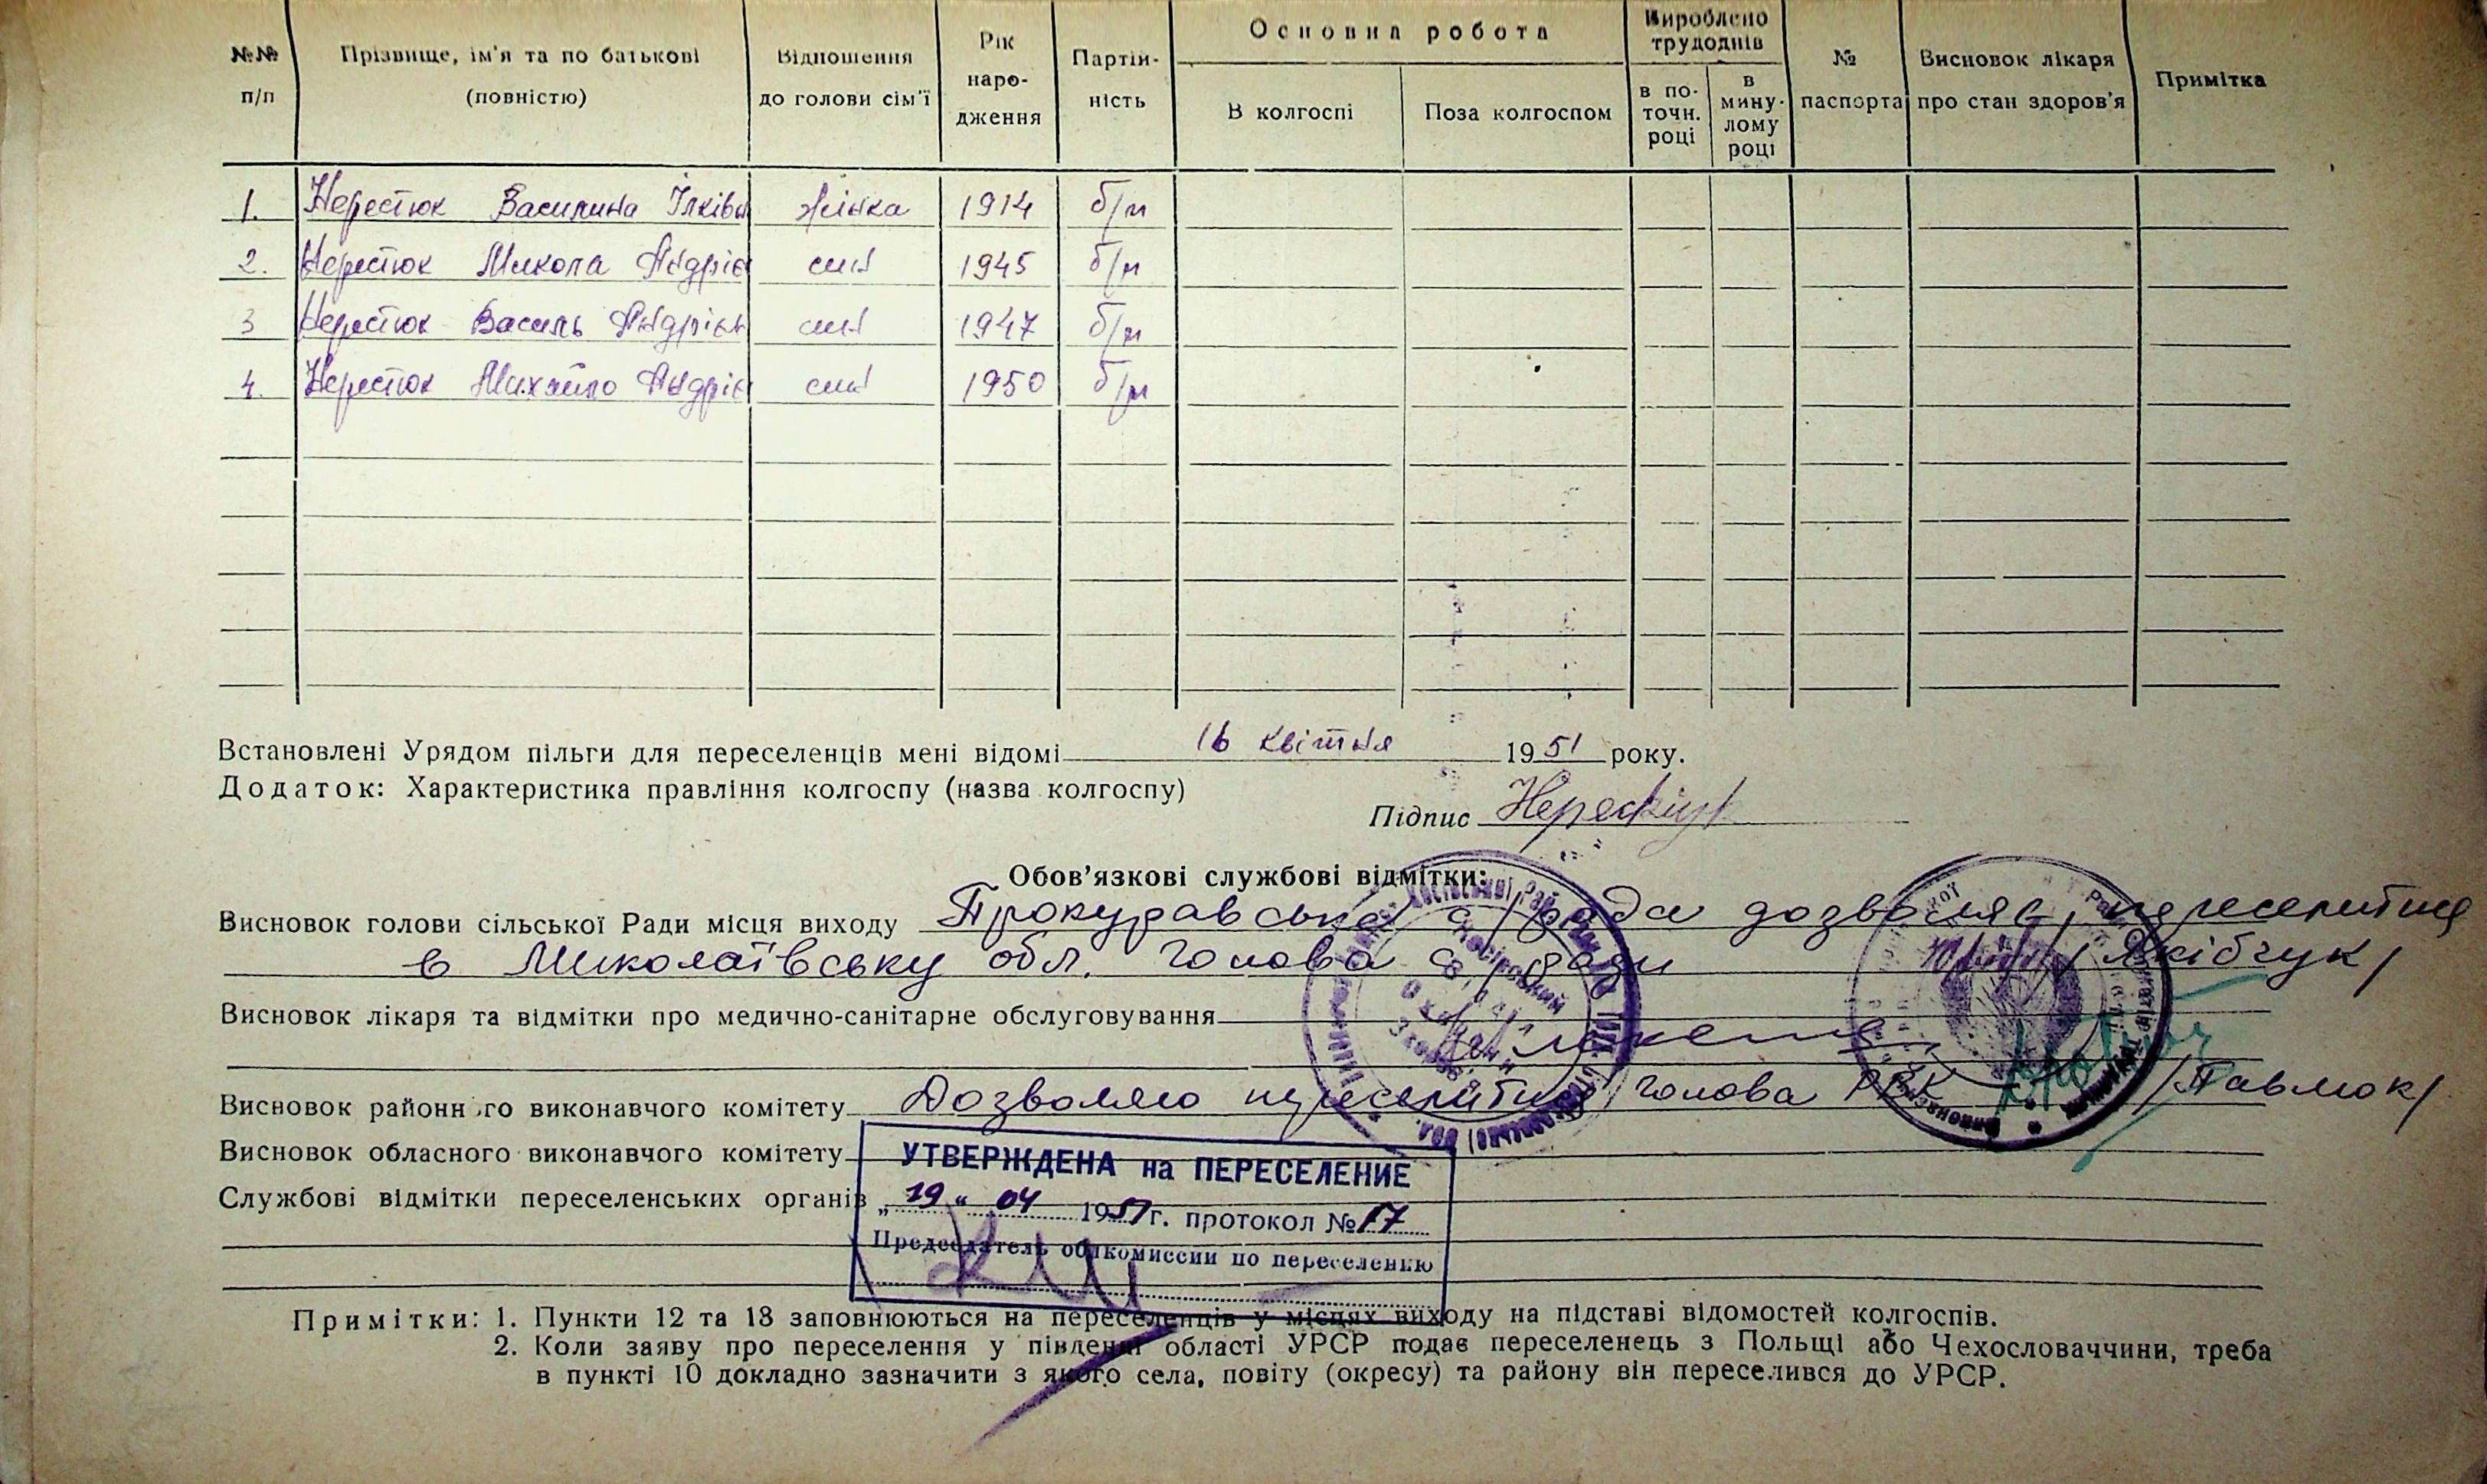 №№ п/п
Прізвище, ім'я та по батькові (повністю)
Відношення до голови сім'ї
Рік наро-дження
Партій-ність
Основна робота
В колгоспі
Поза колгоспом
Вироблено трудоднів
в по-точн. році
в мину-лому році
№ паспорта
Висновок лікаря про стан здоров'я
Примітка
1. Нерестюк Василина Ілківн жінка 1914 б/п
2. Нерестюк Микола Андріє син 1945 б/п
3 Нерестюк Василь Андрієв син 1947 б/п
4. Нерестюк Михайло Андріє син 1950 б/п
Встановлені Урядом пільги для переселенців мені відомі 16 квітня 1951 року.
Додаток: Характеристика правління колгоспу (назва колгоспу)
Підпис
Обов'язкові службові відмітки:
Висновок голови сільської Ради місця виходу Прокуравська с/рада дозволяє переселитись
в Миколаївську обл. Голова с/ради /Якібчук/
Висновок лікаря та відмітки про медично-санітарне обслуговування
Висновок районного виконавчого комітету Дозволяю переселитись голова РВК /Павлюк/
Висновок обласного виконавчого комітету
УТВЕРЖДЕНА на ПЕРЕСЕЛЕНИЕ
Службові відмітки переселенських органів
„19“ 04 1951 г. протокол № 17
Председатель облкомиссии по переселению
Примітки: 1. Пункти 12 та 13 заповнюються на переселенців у місцях виходу на підставі відомостей колгоспів.
2. Коли заяву про переселення у південні області УРСР подає переселенець з Польщі або Чехословаччини, треба
в пункті 10 докладно зазначити з якого села, повіту (окресу) та району він переселився до УРСР.